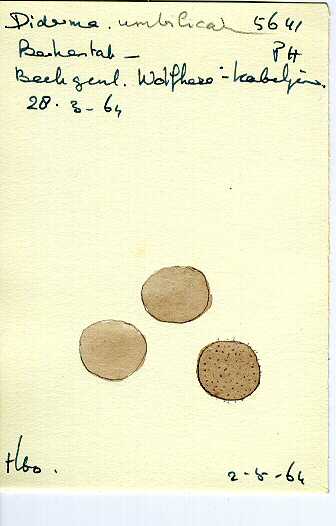 Diderma umbilicat 5641
Berkentak - PH
Beekgent. Wolfheze - Kabeljauw.
28. 3 - 64
Hbo.
2-5-64